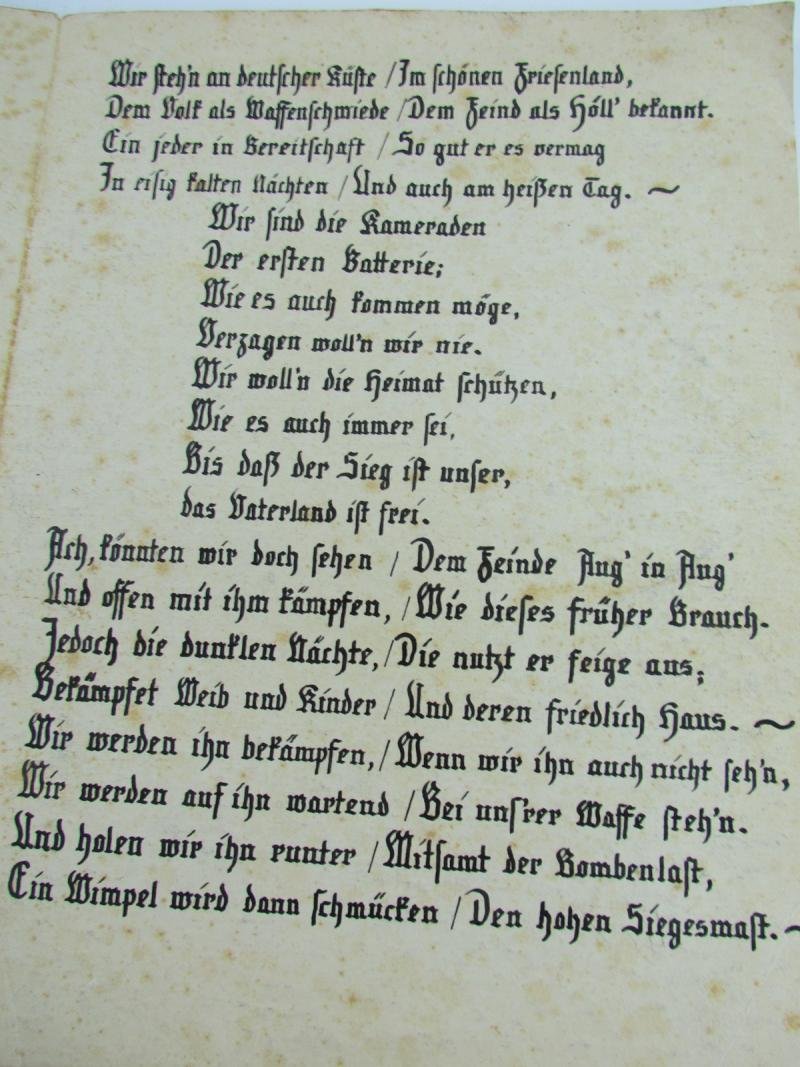 Wir steh'n an deutscher Küste / Im schönen Friesenland,
Dem Volk als Waffenschmiede / Dem Feind als Höll' bekannt.
Ein jeder in Bereitschaft / So gut er es vermag
In eisig kalten Nächten / Und auch am heißen Tag. ~
Wir sind die Kameraden
Der ersten Batterie;
Wie es auch kommen möge,
Verzagen woll'n wir nie.
Wir woll'n die Heimat schützen,
Wie es auch immer sei,
Bis daß der Sieg ist unser,
das Vaterland ist frei.
Ach, könnten wir doch sehen / Dem Feinde Aug' in Aug'
Und offen mit ihm kämpfen, / Wie dieses früher Brauch.
Jedoch die dunklen Nächte, / Die nutzt er feige aus;
Bekämpfet Weib und Kinder / Und deren friedlich Haus. ~
Wir werden ihn bekämpfen, / Wenn wir ihn auch nicht seh'n,
Wir werden auf ihn wartend / Bei uns'rer Waffe steh'n.
Und holen wir ihn runter / Mitsamt der Bombenlast,
Ein Wimpel wird dann schmücken / Den hohen Siegesmast. ~